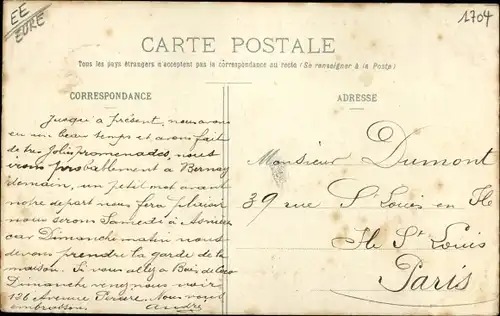 EE
EURE
1704
CARTE POSTALE
Tous les pays étrangers n'acceptent pas la correspondance au recto (Se renseigner à la Poste)
CORRESPONDANCE
Jusqu'à présent, nous avons
eu un beau temps et avons fait
de très jolis promenades, nous
irons probablement à Bernay
demain, un petit mot avant
notre départ nous fera plaisir
nous serons Samedi à Asnières
car Dimanche matin nous
devons prendre la garde de la
maison. Si vous allez à Bois de
Dimanche venez nous voir
126 Avenue Pereire. Nous vous
embrassons. André
ADRESSE
Monsieur Dumont
39 rue St Louis en Ile
Ile St Louis
Paris